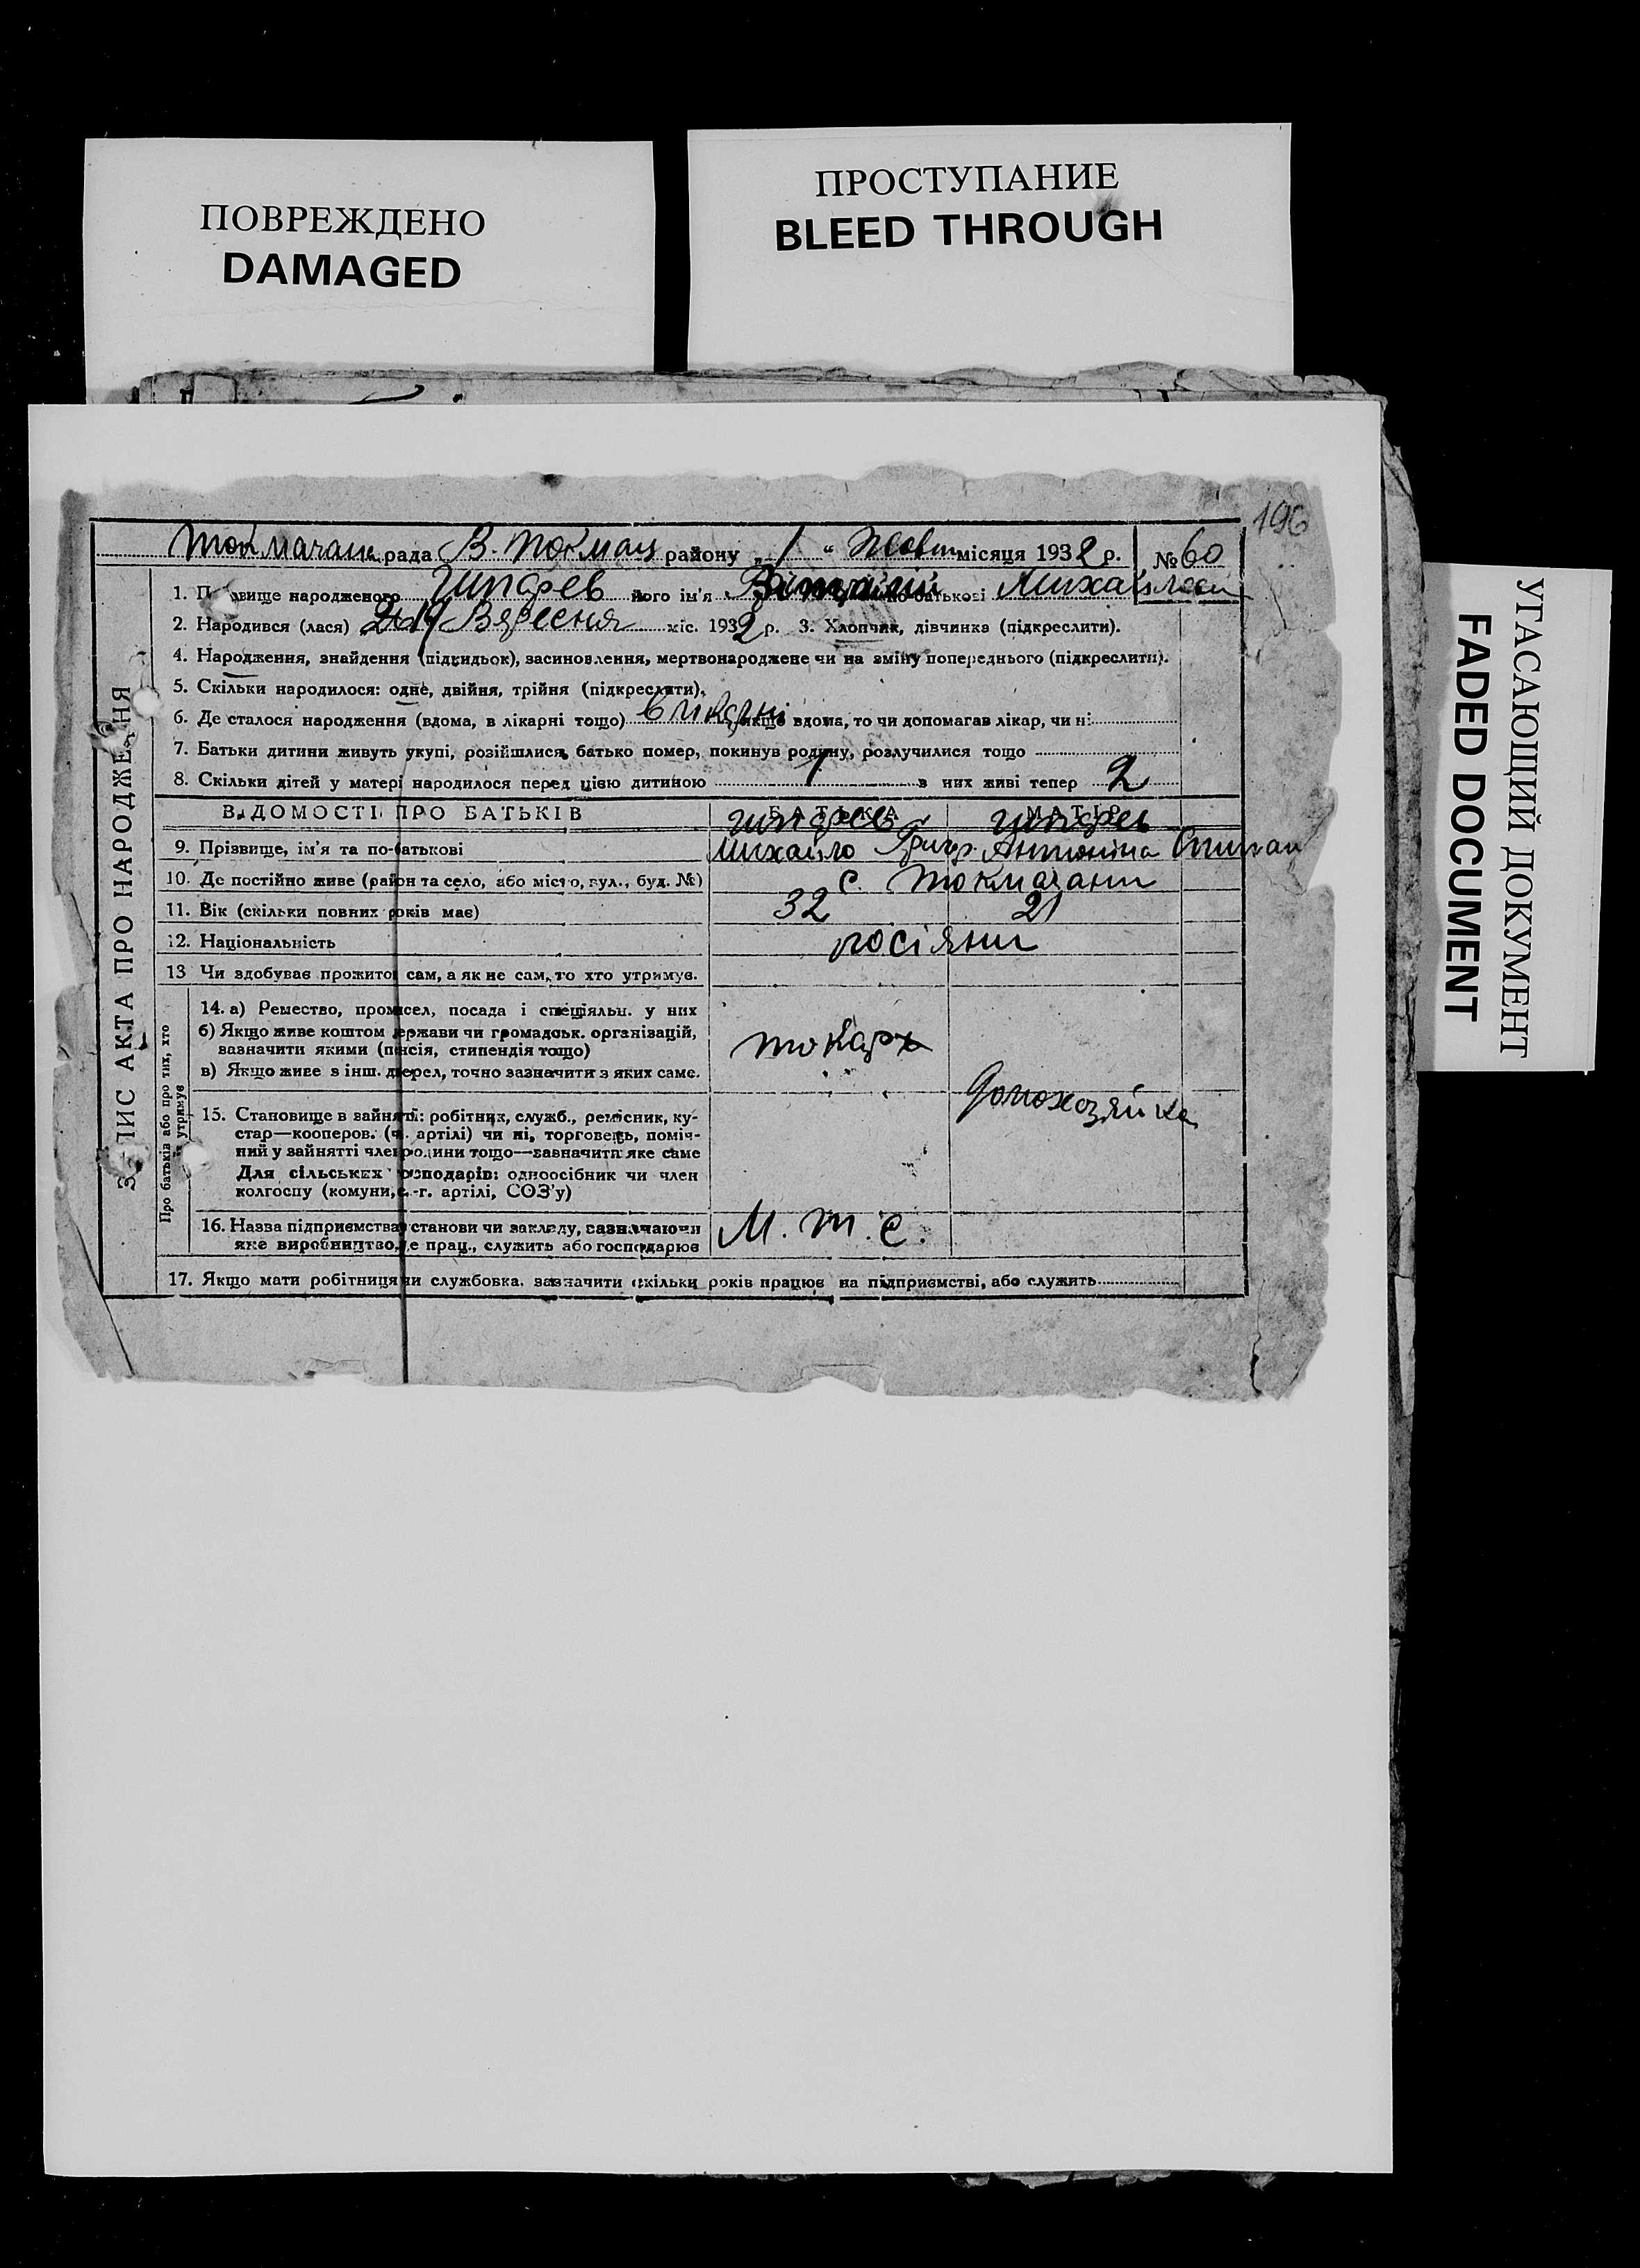 ПОВРЕЖДЕНО
DAMAGED
ПРОСТУПАНИЕ
BLEED THROUGH
УГАСАЮЩИЙ ДОКУМЕНТ
FADED DOCUMENT
196
Токмачан. рада В. Токмац району „1“ Жовтн місяця 1932 р. № 60
ЗАПИС АКТА ПРО НАРОДЖЕННЯ
1. Прізвище народженого його ім'я по-батькові Михайлов
2. Народився (лася) Вересня міс. 1932 р. 3. Хлопчик, дівчинка (підкреслити).
4. Народження, знайдення (підкидьок), засиновлення, мертвонароджене чи на зміну попереднього (підкреслити).
5. Скільки народилося: одне, двійня, трійня (підкреслити).
6. Де сталося народження (вдома, в лікарні тощо) в лікарні якщо вдома, то чи допомагав лікар, чи ні
7. Батьки дитини живуть укупі, розійшлися, батько помер, покинув родину, розлучилися тощо
8. Скільки дітей у матері народилося перед цією дитиною 1 з них живі тепер 2
ВІДОМОСТІ ПРО БАТЬКІВ БАТЬКА МАТІР
9. Прізвище, ім'я та по-батькові Михайло Григр. Антоніна
10. Де постійно живе (район та село, або місто, вул., буд. №) с. Токмачани
11. Вік (скільки повних років має) 32 21
12. Національність росіяни
13 Чи здобуває прожиток сам, а як не сам, то хто утримує.
Про батьків або про тих, хто їх утримує
14. а) Ремество, промисел, посада і спеціяльн. у них
б) Якщо живе коштом держави чи громадськ. організацій,
зазначити якими (пенсія, стипендія тощо)
в) Якщо живе з інш. джерел, точно зазначити з яких саме.
токарь
Домохозяйка
15. Становище в зайнятті: робітник, служб., ремісник, ку-
стар—кооперов. (ч. артілі) чи ні, торговець, поміч-
ний у зайнятті член родини тощо—зазначити яке саме
Для сільських господарів: одноосібник чи член
колгоспу (комуни, с.-г. артілі, СОЗ'у)
16. Назва підприємства, установи чи закладу, зазначаючи
яке виробництво, де прац., служить або господарює
М. Т. С.
17. Якщо мати робітниця чи службовка, зазначити скільки років працює на підприємстві, або служить